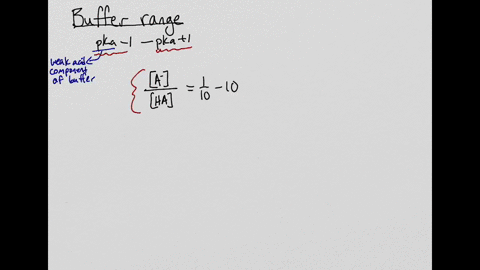 Buffer range
pka-1 - pka+1
weak acid
component
of buffer
[A⁻]
/
[HA] = 1/10 - 10